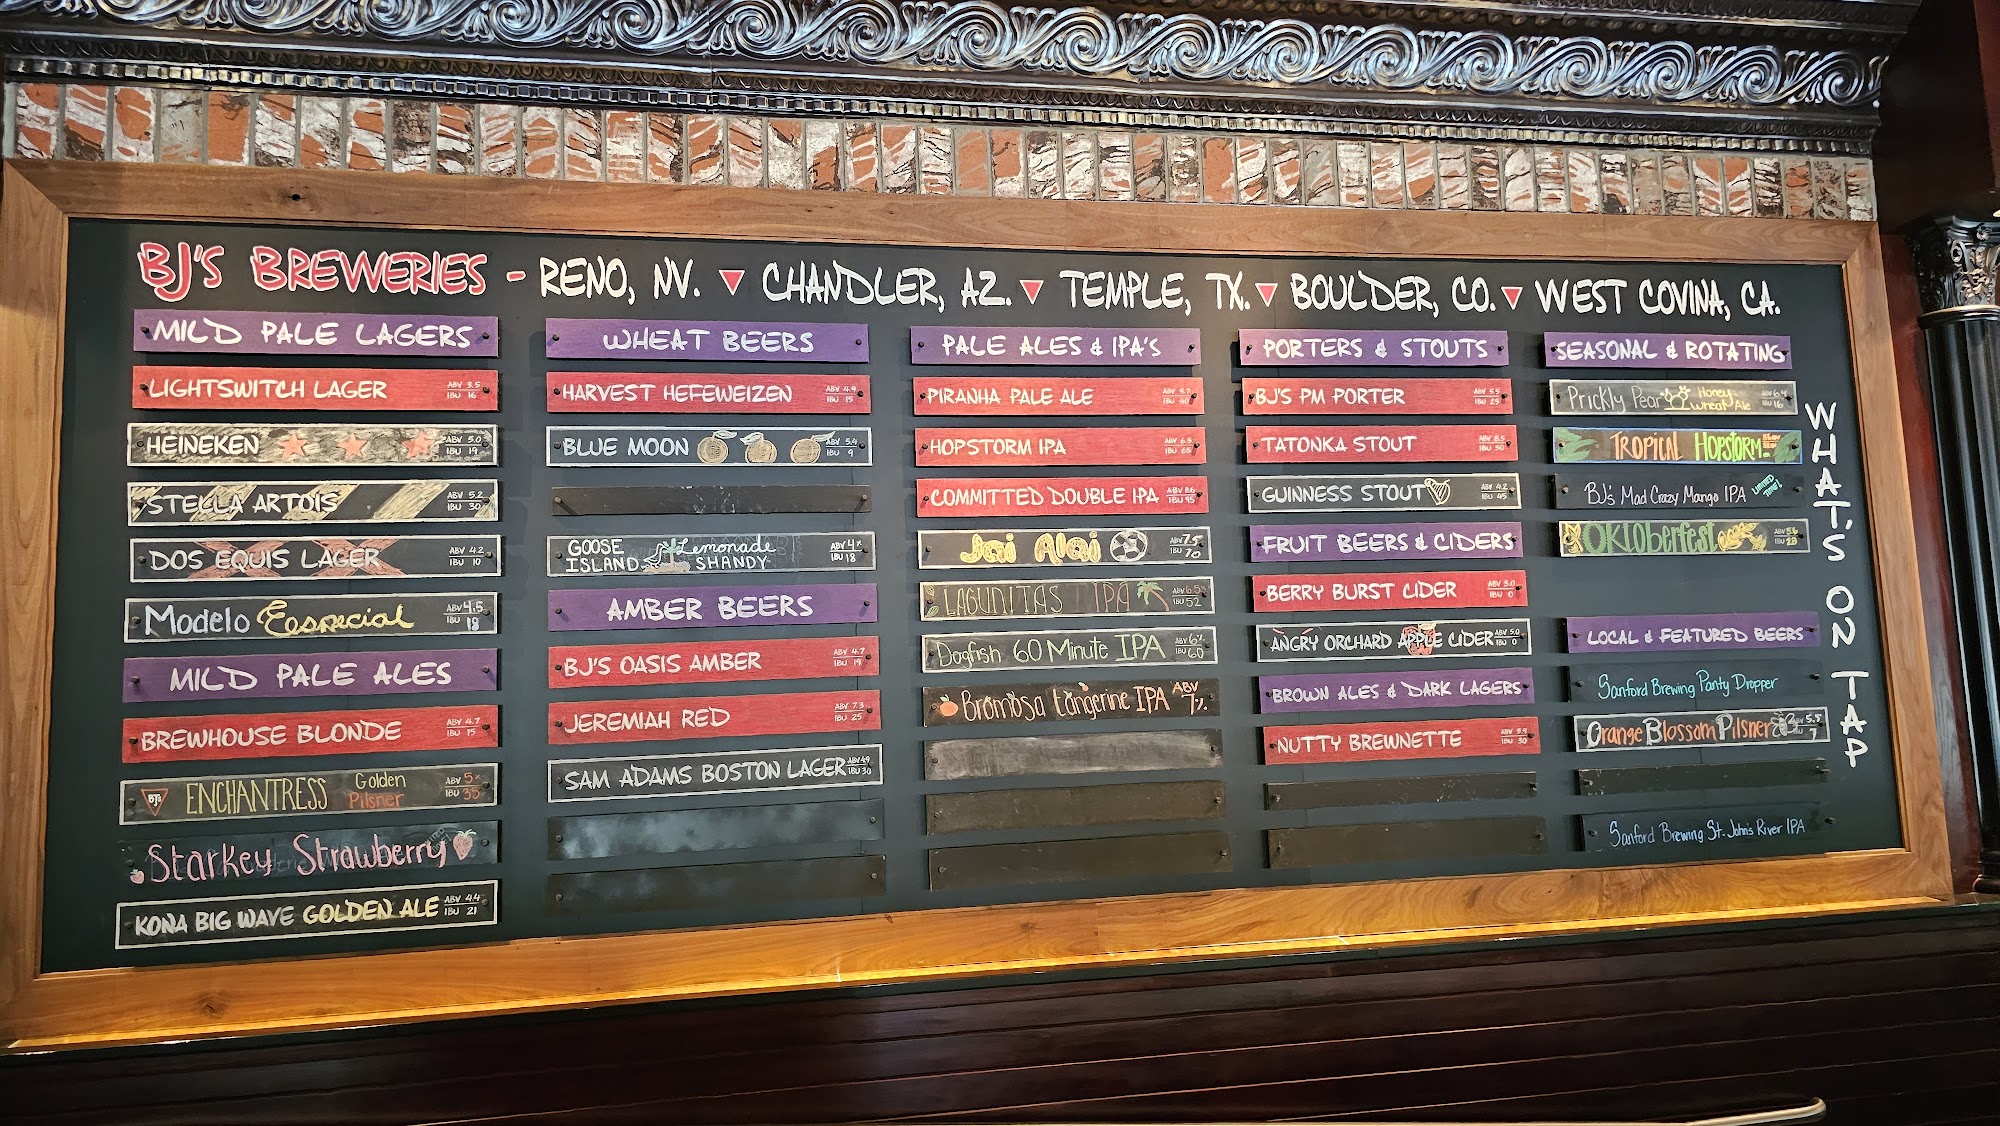 BJ'S BREWERIES - RENO, NV. ▼ CHANDLER, AZ. ▼ TEMPLE, TX. ▼ BOULDER, CO. ▼ WEST COVINA, CA.
MILD PALE LAGERS
LIGHTSWITCH LAGER ABV 3.5 IBU 16
HEINEKEN ABV 5.0 IBU 19
STELLA ARTOIS ABV 5.2 IBU 30
DOS EQUIS LAGER ABV 4.2 IBU 10
Modelo Especial ABV 4.5 IBU 18
MILD PALE ALES
BREWHOUSE BLONDE ABV 4.7 IBU 15
BJ's ENCHANTRESS Golden Pilsner ABV 5% IBU 35
Starkey Strawberry
KONA BIG WAVE GOLDEN ALE ABV 4.4 IBU 21
WHEAT BEERS
HARVEST HEFEWEIZEN ABV 4.9 IBU 15
BLUE MOON ABV 5.4 IBU 9
GOOSE ISLAND Lemonade SHANDY ABV 4% IBU 18
AMBER BEERS
BJ'S OASIS AMBER ABV 4.7 IBU 19
JEREMIAH RED ABV 7.3 IBU 25
SAM ADAMS BOSTON LAGER ABV 4.9 IBU 30
PALE ALES & IPA'S
PIRANHA PALE ALE ABV 5.7 IBU 40
HOPSTORM IPA ABV 6.5 IBU 65
COMMITTED DOUBLE IPA ABV 8.6 IBU 95
Jai Alai ABV 7.5 IBU 70
LAGUNITAS IPA ABV 6.5% IBU 52
Dogfish 60 Minute IPA ABV 6% IBU 60
Bromosa tangerine IPA ABV 7%
PORTERS & STOUTS
BJ'S PM PORTER ABV 5.5 IBU 25
TATONKA STOUT ABV 8.5 IBU 50
GUINNESS STOUT ABV 4.2 IBU 45
FRUIT BEERS & CIDERS
BERRY BURST CIDER ABV 5.0 IBU 0
ANGRY ORCHARD APPLE CIDER ABV 5.0 IBU 0
BROWN ALES & DARK LAGERS
NUTTY BREWNETTE ABV 5.9 IBU 30
SEASONAL & ROTATING
Prickly Pear Honey Wheat Ale ABV 6.4 IBU 16
TROPICAL HOPSTORM
BJ's Mad Crazy Mango IPA LIMITED TIME!
OKtoberfest ABV 5.6 IBU 23
LOCAL & FEATURED BEERS
Sanford Brewing Panty Dropper
Orange Blossom Pilsner ABV 5.5 IBU 7
Sanford Brewing St. John's River IPA
WHAT'S ON TAP